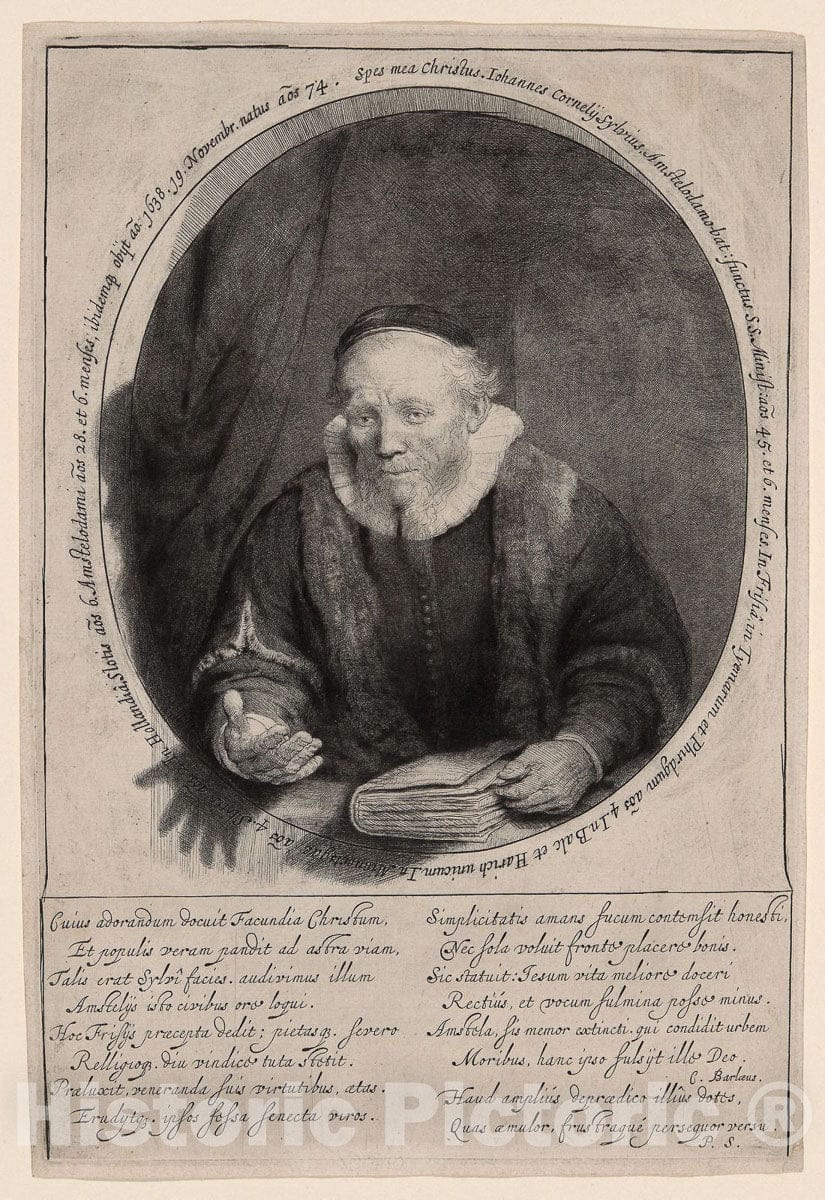 Spes mea Christus. Iohannes Cornelij Sylvius, Amstelodamo-bat: functus S.S. Minist: aōs 45. et 6. menses. In Frisiâ, in Tyenarum et Phirdgum aōs 4. In Balc et Harich unicum. In Minnertsgae aōs 4. Slotis aōs 6. In Hollandiâ, Slotis aōs 6. Amstelodami aōs 28. et 6. menses, ibidemq obijt aō. 1638. 19. Novembr. natus aōs 74.
Cuius adorandum docuit Facundia Christum,
Et populis veram pandit ad astra viam,
Talis erat Sylvî facies. audivimus illum
Amstelijs isto civibus ore loqui.
Hoc Frisijs præcepta dedit; pietasq. severo
Relligioq. diu vindice tuta stetit.
Præluxit, veneranda suis virtutibus, ætas.
Erudijtq. ipsos fessa senecta viros.
Simplicitatis amans fucum contemsit honesti,
Nec sola voluit fronte placere bonis.
Sic statuit: Iesum vita meliore doceri
Rectiùs, et vocum fulmina posse minus.
Amstela, sis memor extincti. qui condidit urbem
Moribus, hanc ipso fulsijt ille Deo.
C. Barlæus.
Haud ampliùs deprædico illîus dotes,
Quas æmulor, frustraque persequor versu.
P. S.
Historic Pictoric ®